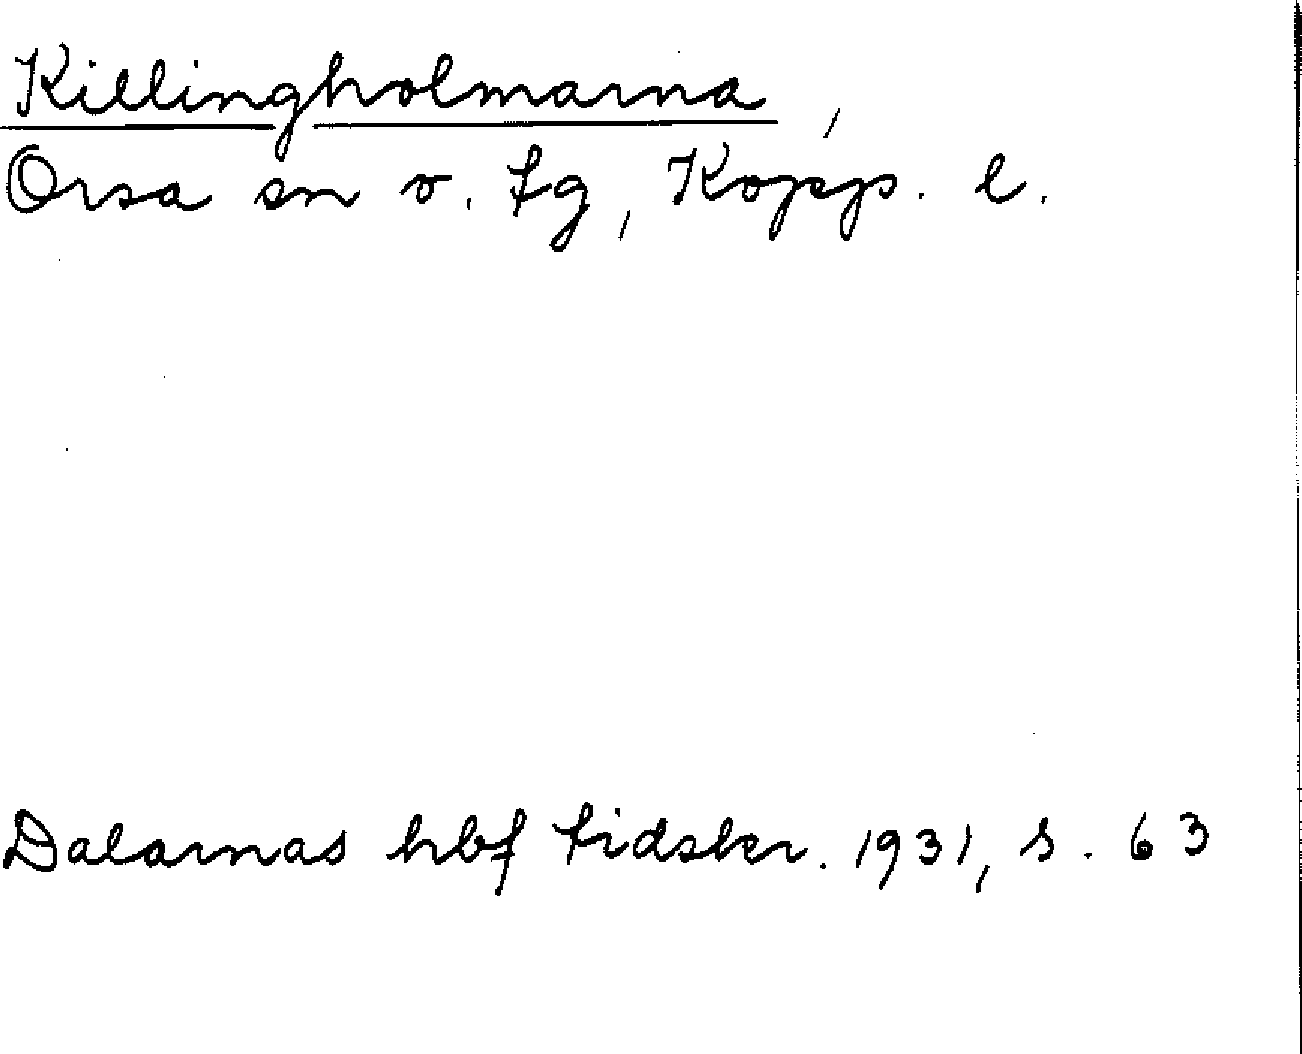 Killingholmarna,
Orsa sn o. tg, Kopp. l.
Dalarnas hbf tidskr. 1931, s. 63